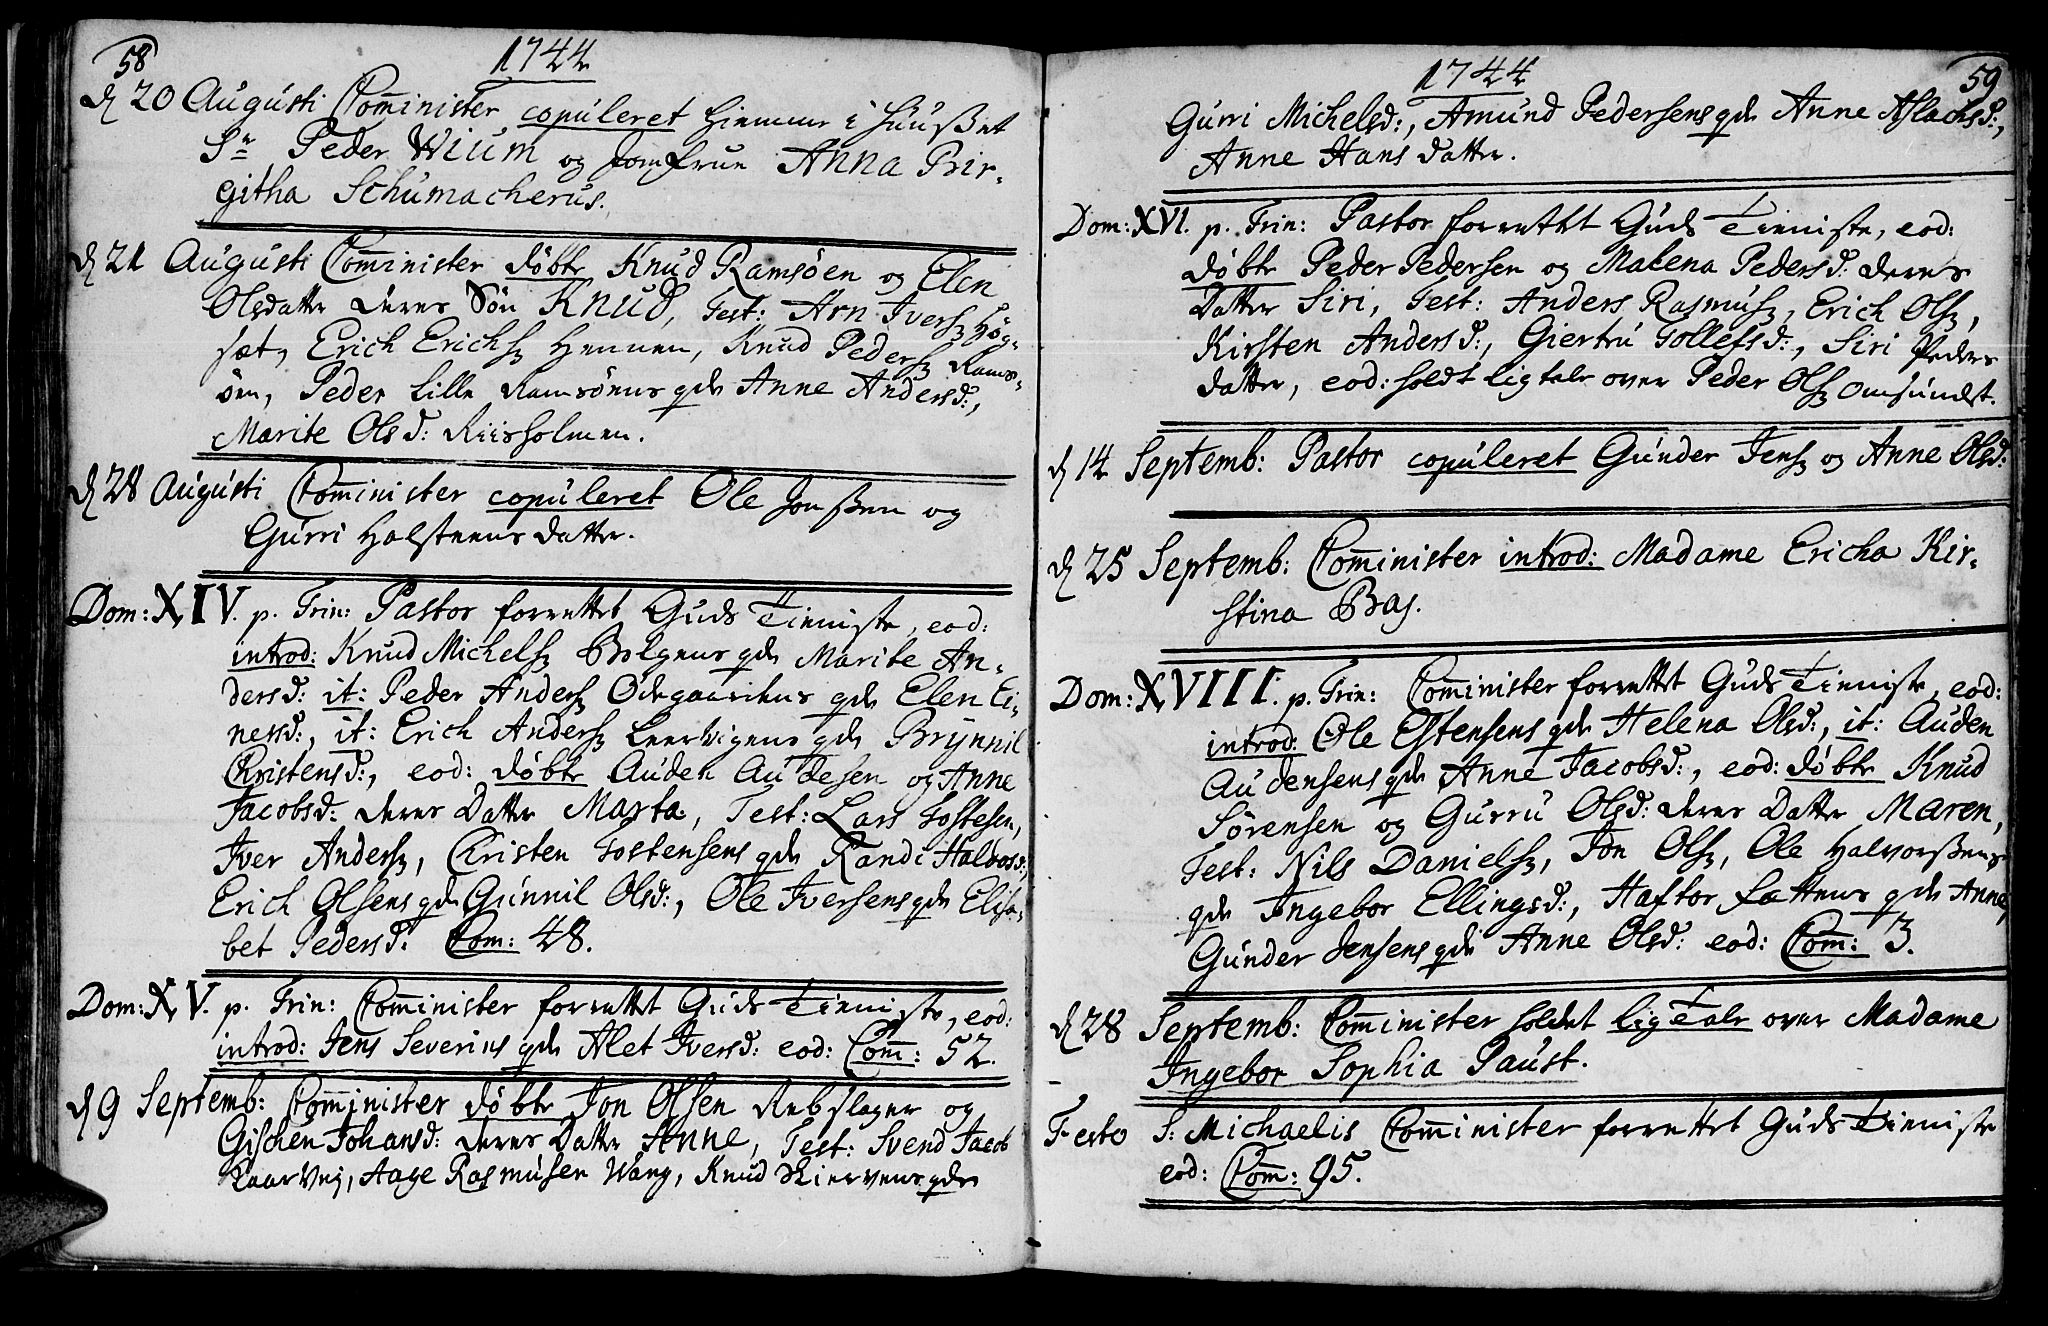 58
1744
d 20 Augusti Comminister copuleret hiemme i Huusset
Sr Peder Wium og Jomfrue Anna Bir-
githa Schumacherus.
d 21 Augusti Comminister döbte Knud Ramsöen og Elen
Olsdatter deres Sön Knud, Test: Arn Ivers: Hög-
sæt, Erich Erichs: Hennen, Knud Peders: Rams-
öen, Peder Lille Ramsöens qde Anne Andersd:,
Marite Olsd: Riisholmen.
d 28 Augusti Comminister copuleret Ole Jonssen og
Gurri Halsteens datter.
Dom: XIV. p. Trin: Pastor forrettet Guds Tieniste, eod:
introd: Knud Michels: Bolgens qde Marite An-
dersd: it: Peder Anders: Ödegaardens qde Elen Ei-
nersd:, it: Erich Anders: Leervigens qde Brynnil
Christensd:, eod: döbte Auden Audesen og Anne
Jacobsd: deres Datter Marta, Test: Lars Tostesen,
Iver Anders:, Christen Tostensens qde Randi Haldosd:,
Erich Olsens qde Gunnil Olsd:, Ole Iversens qde Elisa-
bet Pedersd: Com: 48.
Dom: XV. p. Trin: Comminister forrettet Guds Tieniste, eod:
introd: Jens Severins qde Alet Iversd: eod: Comm: 52.
d 9 Septemb: Comminister döbte Jon Olsen Rebslager og
Gischen Johansd: deres Datter Anne, Test: Svend Jacob
Kaarvej, Aage Rasmusen Wang, Knud Skiervens qde
1744
59
Gurri Michelsd:, Amund Pedersens qde Anne Aslachsd:,
Anne Hans datter.
Dom: XVI. p. Trin: Pastor forrettet Guds Tieniste, eod:
döbte Peder Pedersen og Malena Pedersd: deres
Datter Siri, Test: Anders Rasmus:, Erich Ols:,
Kirsten Andersd:, Giertru Tollefsd:, Siri Peders
datter, eod: holdt ligtale over Peder Ols: Omsundet.
d 14 Septemb: Pastor copuleret Gunder Jens: og Anne Olsd:
d 25 Septemb: Comminister introd: Madame Ericha Kir-
stina Bas.
Dom: XVIII. p. Trin: Comminister forrettet Guds Tieniste, eod:
introd: Ole Estensens qde Helena Olsd:, it: Auden
Audensens qde Anne Jacobsd:, eod: döbte Knud
Sörensen og Gurru Olsd: deres Datter Maren,
Test: Nils Daniels:, Jon Ols:, Ole Halvorssens
qde Ingebor Ellingsd:, Haftor Fættens qde Anne,
Gunder Jensens qde Anne Olsd: eod: Com: 3.
d 28 Septemb: Comminister holdet ligTale over Madame
Ingebor Sophia Paust.
Festo S: Michaelis Comminister forrettet Guds Tieniste
eod: Com: 95.